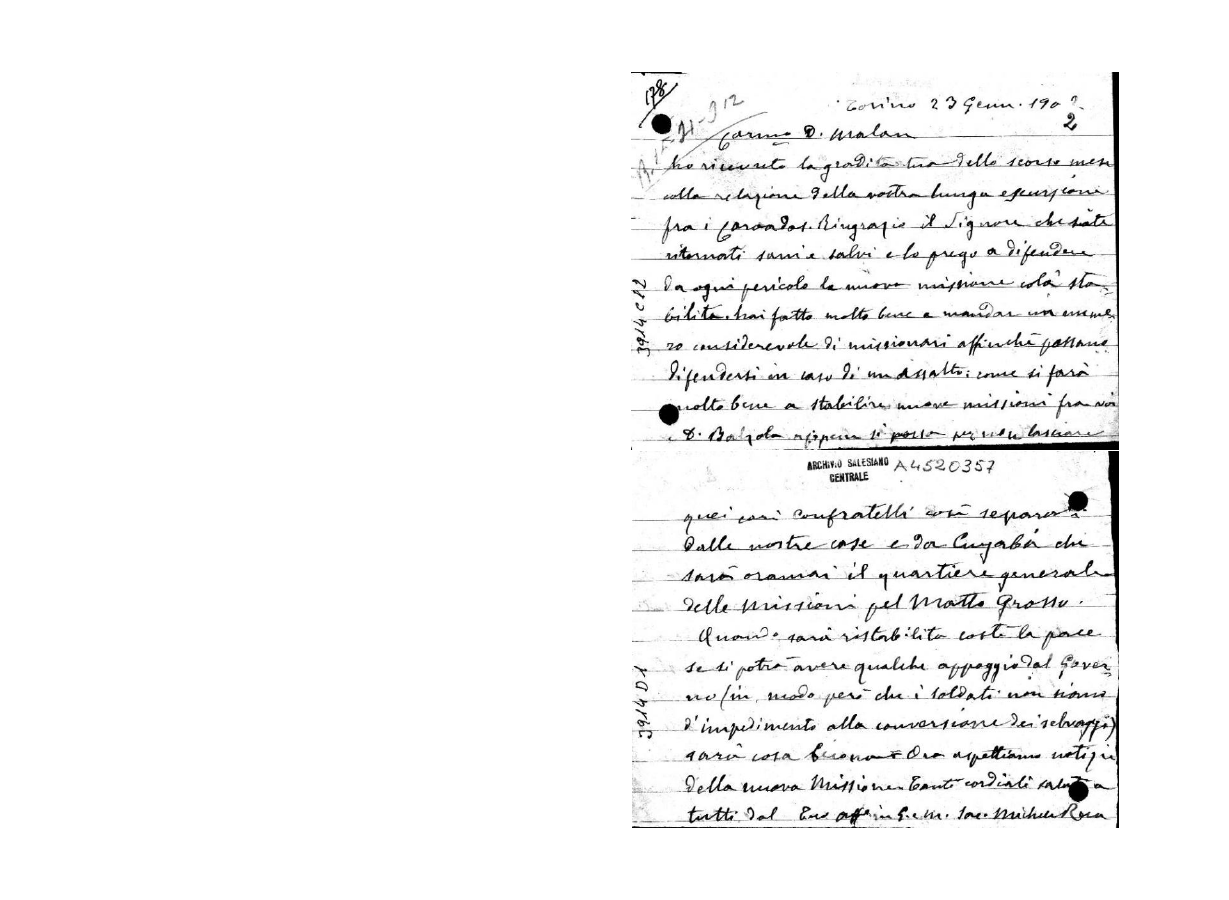 178
Torino 23 Genn. 190?
2
A. 15-21-912
Carmo D. Malan
ho ricevuto la gradita tua dello scorso mese
colla relazione della vostra lunga escursione
fra i Coroados. Ringrazio il Signore che siate
ritornati sani e salvi e lo prego a difendere
da ogni pericolo la nuova missione colà sta-
bilita. hai fatto molto bene a mandar un nume-
ro considerevole di missionari affinchè possano
difendersi in caso di un assalto: come si farà
molto bene a stabilire nuove missioni fra voi
e D. Balzola appena si possa per non lasciare
3914 C12
ARCHIVIO SALESIANO A4520357
CENTRALE
quei cari confratelli così separati
dalle nostre case e da Cuyabá che
sarà oramai il quartiere generale
delle Missioni pel Matto Grosso.
Quando sarà ristabilita costì la pace
se si potrà avere qualche appoggio dal Gover-
no (in modo però che i soldati non siano
d'impedimento alla conversione dei selvaggi)
sarà cosa buona = Ora aspettiamo notizie
della nuova Missione. Tanti cordiali saluti a
tutti dal Tuo affmo in G. e M. Sac. Michele Rua
3914 D1